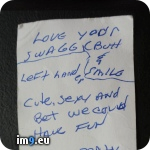 LOVE YOUR
SWAGG & BUTT
&
LEFT HAND, SMILE
CUTE, SEXY AND
BET WE COULD
HAVE FUN
im9.eu